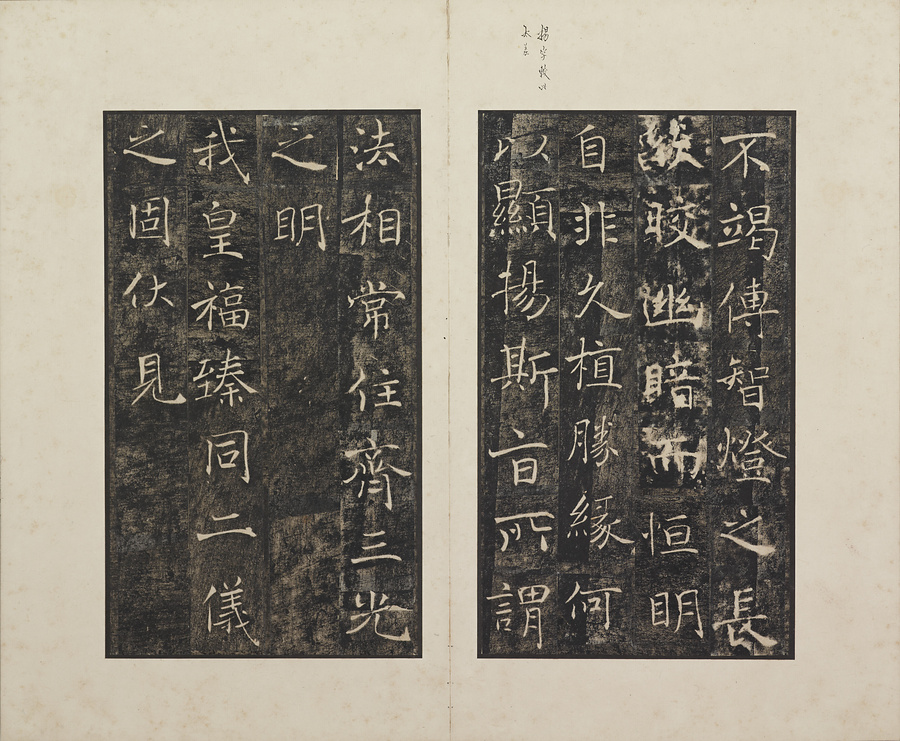 不竭傳智燈之長
燄晈幽暗而恒明
自非久植勝緣何
以顯揚斯旨所謂
法相常住齊三光
之明
我皇福臻同二儀
之固伏見